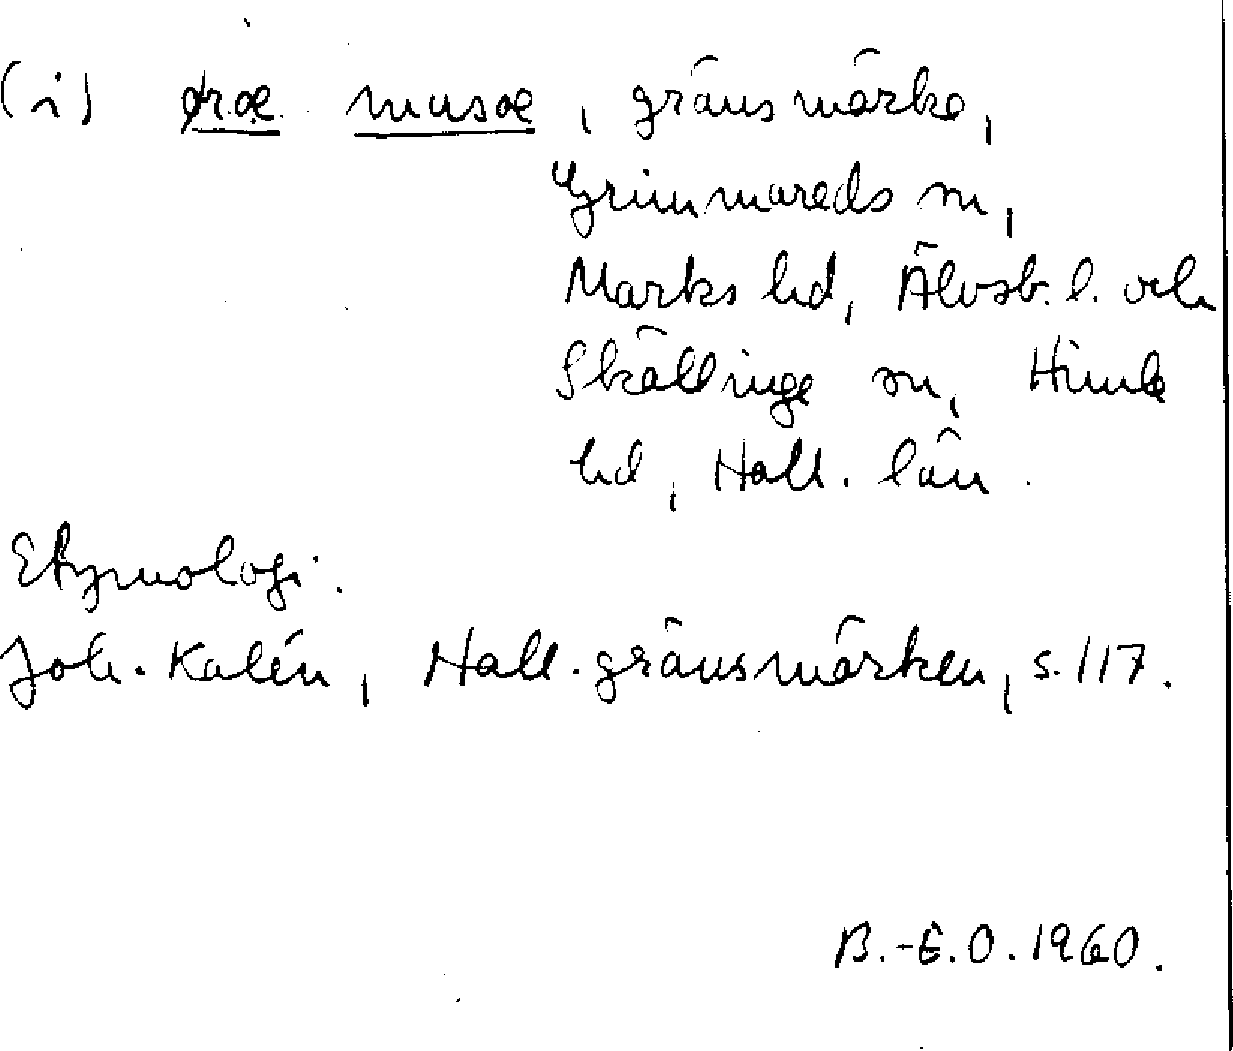 (i) øræ musæ, gränsmärke,
Grimmareds sn,
Marks hd, Älvsb. l. och
Skällinge sn, Himle
hd, Hall. län.
Etymologi.
Joh. Kalén, Hall. gränsmärken, s. 117.
B.-E.O. 1960.